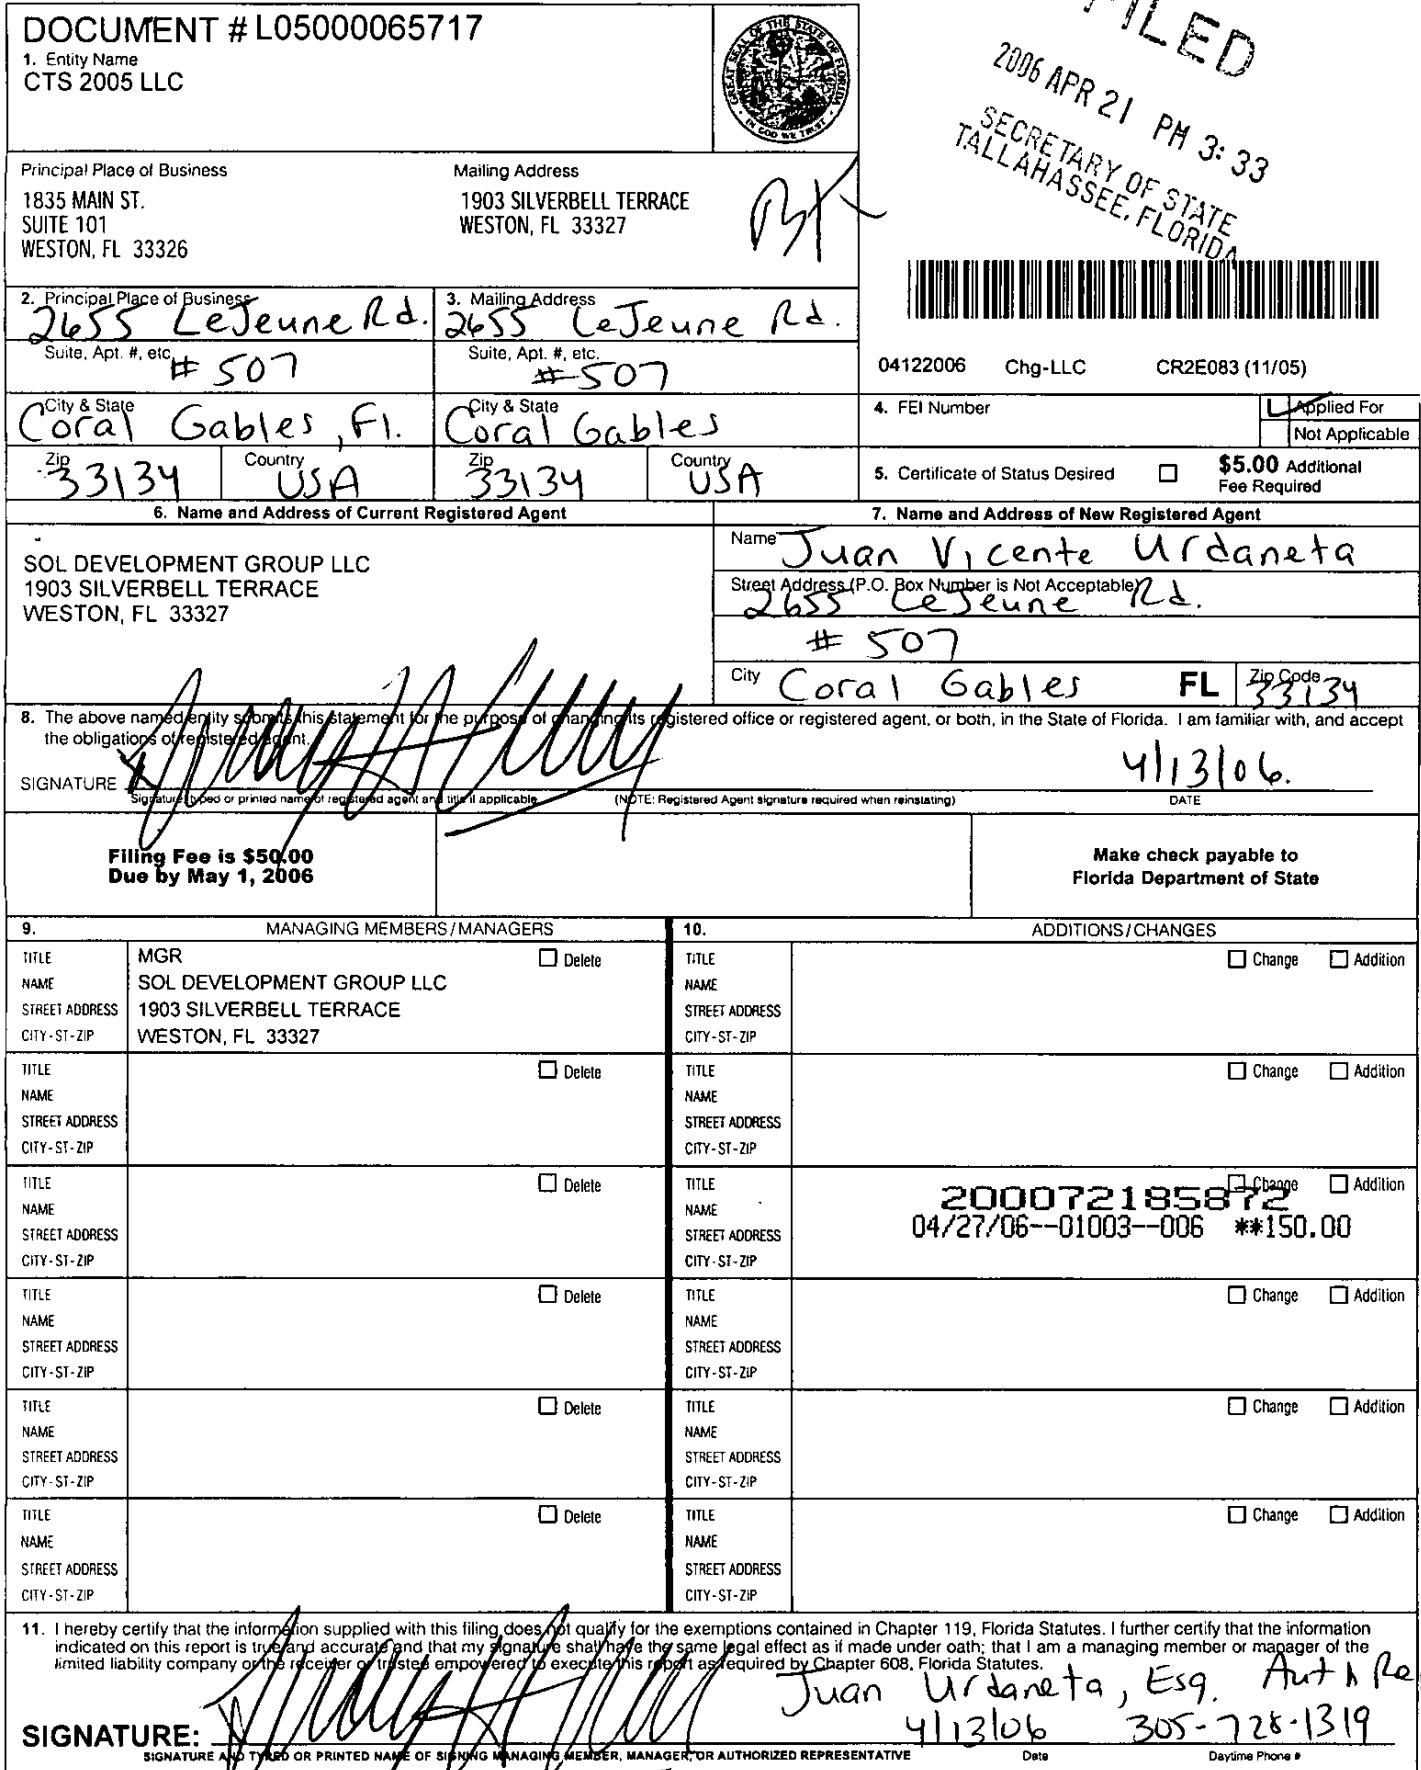 DOCUMENT # L05000065717
1. Entity Name
CTS 2005 LLC
GREAT SEAL OF THE STATE OF FLORIDA
IN GOD WE TRUST
FILED
2006 APR 21 PM 3:33
SECRETARY OF STATE
TALLAHASSEE, FLORIDA
Principal Place of Business
1835 MAIN ST.
SUITE 101
WESTON, FL 33326
Mailing Address
1903 SILVERBELL TERRACE
WESTON, FL 33327
2. Principal Place of Business
2655 LeJeune Rd.
Suite, Apt. #, etc.
# 507
City & State
Coral Gables, Fl.
Zip
33134
Country
USA
3. Mailing Address
2655 LeJeune Rd.
Suite, Apt. #, etc.
#507
City & State
Coral Gables
Zip
33134
Country
USA
04122006 Chg-LLC CR2E083 (11/05)
4. FEI Number
Applied For
Not Applicable
5. Certificate of Status Desired
$5.00 Additional
Fee Required
6. Name and Address of Current Registered Agent
SOL DEVELOPMENT GROUP LLC
1903 SILVERBELL TERRACE
WESTON, FL 33327
7. Name and Address of New Registered Agent
Name Juan Vicente Urdaneta
Street Address (P.O. Box Number is Not Acceptable)
2655 LeJeune Rd.
# 507
City Coral Gables FL Zip Code 33134
8. The above named entity submits this statement for the purpose of changing its registered office or registered agent, or both, in the State of Florida. I am familiar with, and accept
the obligations of registered agent.
SIGNATURE
4/13/06.
Signature, typed or printed name of registered agent and title if applicable. (NOTE: Registered Agent signature required when reinstating) DATE
Filing Fee is $50.00
Due by May 1, 2006
Make check payable to
Florida Department of State
9. MANAGING MEMBERS/MANAGERS
10. ADDITIONS/CHANGES
TITLE MGR Delete
NAME SOL DEVELOPMENT GROUP LLC
STREET ADDRESS 1903 SILVERBELL TERRACE
CITY-ST-ZIP WESTON, FL 33327
TITLE Change Addition
NAME
STREET ADDRESS
CITY-ST-ZIP
TITLE Delete
NAME
STREET ADDRESS
CITY-ST-ZIP
TITLE Change Addition
NAME
STREET ADDRESS
CITY-ST-ZIP
TITLE Delete
NAME
STREET ADDRESS
CITY-ST-ZIP
TITLE Change Addition
NAME
STREET ADDRESS
CITY-ST-ZIP
200072185872
04/27/06--01003--006 **150.00
TITLE Delete
NAME
STREET ADDRESS
CITY-ST-ZIP
TITLE Change Addition
NAME
STREET ADDRESS
CITY-ST-ZIP
TITLE Delete
NAME
STREET ADDRESS
CITY-ST-ZIP
TITLE Change Addition
NAME
STREET ADDRESS
CITY-ST-ZIP
TITLE Delete
NAME
STREET ADDRESS
CITY-ST-ZIP
TITLE Change Addition
NAME
STREET ADDRESS
CITY-ST-ZIP
11. I hereby certify that the information supplied with this filing does not qualify for the exemptions contained in Chapter 119, Florida Statutes. I further certify that the information
indicated on this report is true and accurate and that my signature shall have the same legal effect as if made under oath; that I am a managing member or manager of the
limited liability company or the receiver or trustee empowered to execute this report as required by Chapter 608, Florida Statutes.
Juan Urdaneta, Esq. Auth Re
SIGNATURE: 4/13/06 305-728-1319
SIGNATURE AND TYPED OR PRINTED NAME OF SIGNING MANAGING MEMBER, MANAGER, OR AUTHORIZED REPRESENTATIVE Date Daytime Phone #